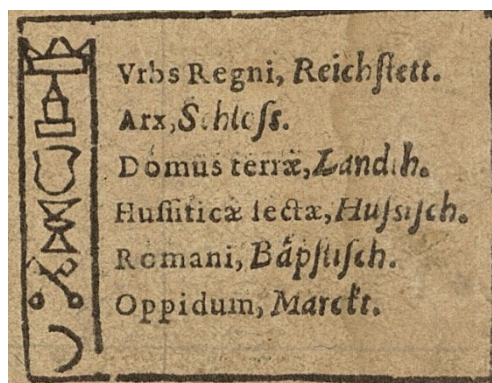 Vrbs Regni, Reichſtett.
Arx, Schloſs.
Domus terræ, Landth.
Huſſiticæ ſectæ, Huſsiſch.
Romani, Båpſtiſch.
Oppidum, Marckt.